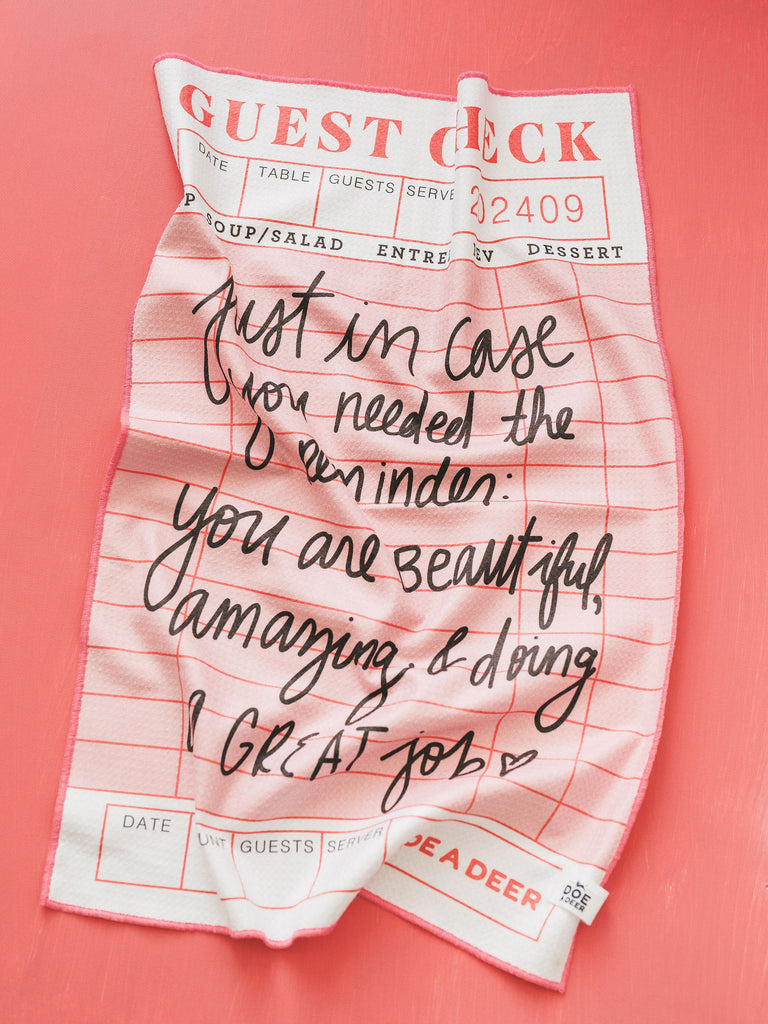 GUEST CHECK
DATE TABLE GUESTS SERVE
202409
P SOUP/SALAD ENTRE EV DESSERT
Just in case
you needed the
reminder:
you are BEAutiful,
amazing & doing
A GREAT job ♡
DATE UNT GUESTS SERVER
OE A DEER
DOE
A DEER